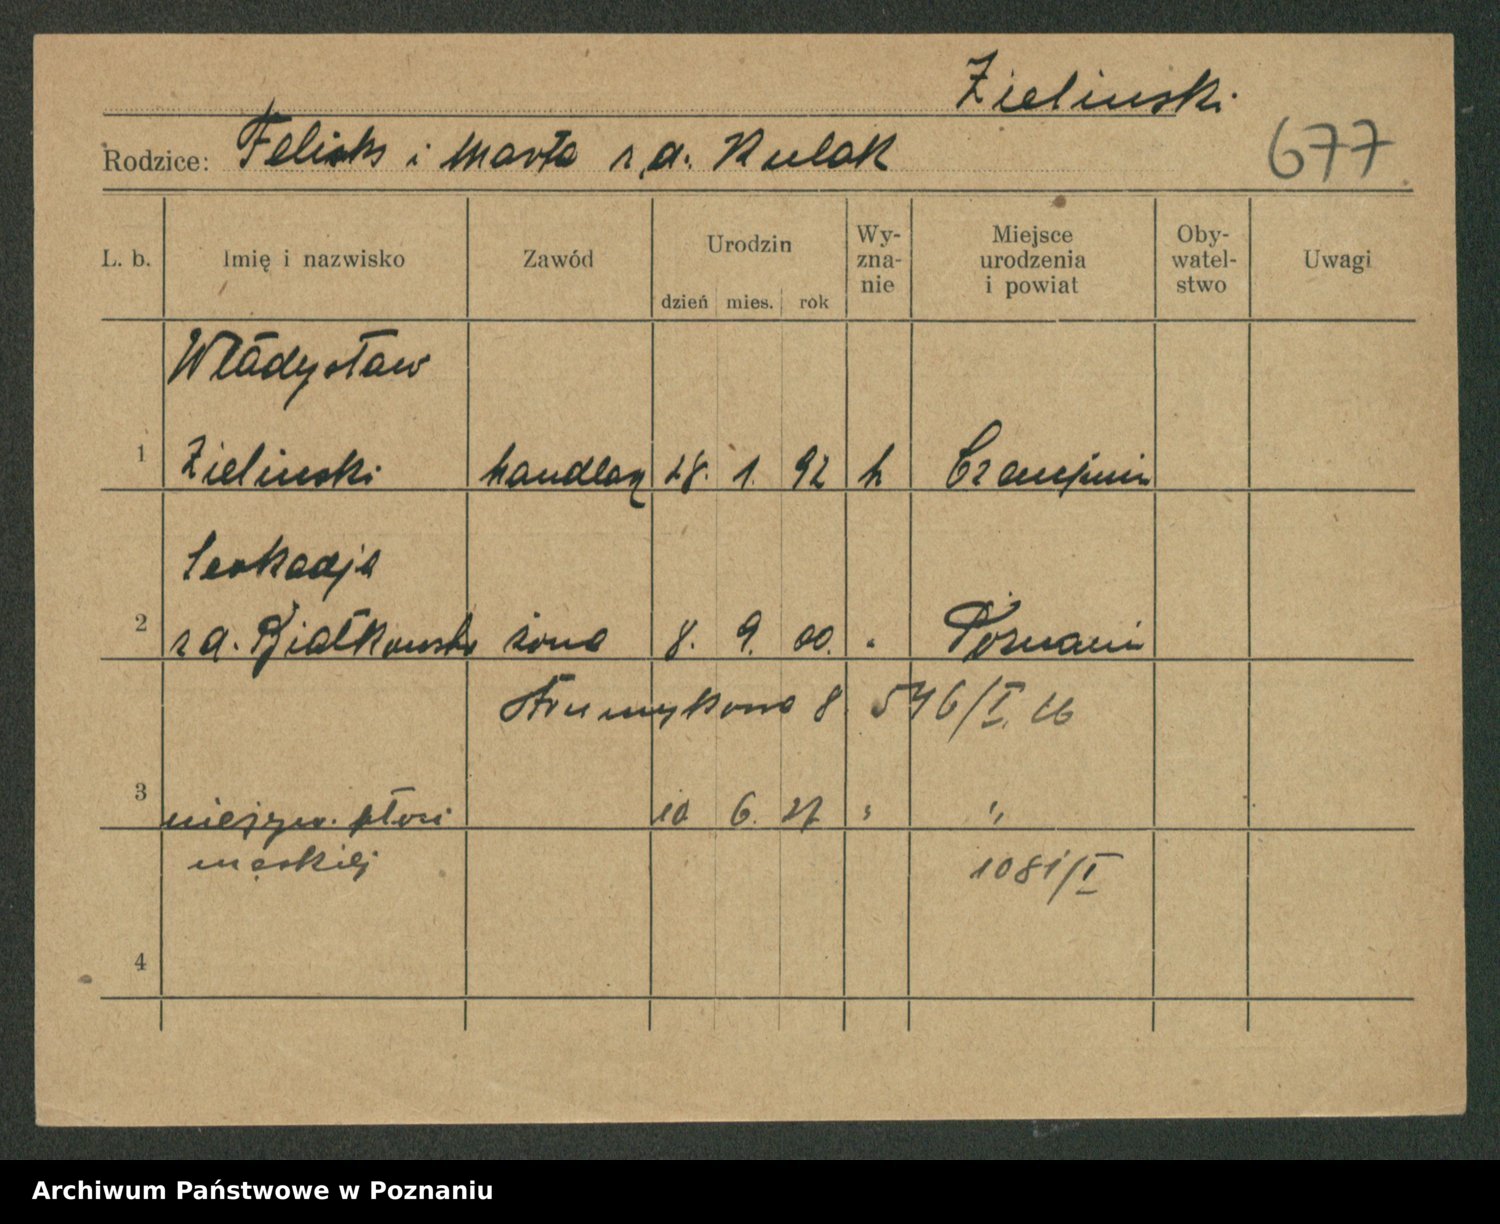 Zielinski
Rodzice: Feliks i Marta z d. Kulak
677
L. b. Imię i nazwisko Zawód Urodzin dzień mies. rok Wy-zna-nie Miejsce urodzenia i powiat Oby-watel-stwo Uwagi
Władysław
1 Zielinski handlarz 28. 1. 92 k Czempiń
Leokadja
2 z d. Białkowska żona 8. 9. 00. " Poznań
Strumykowa 8. 546/I. 26
3 nieżyw. płci 10 6. 27 " "
męskiej 1081/I
4
Archiwum Państwowe w Poznaniu